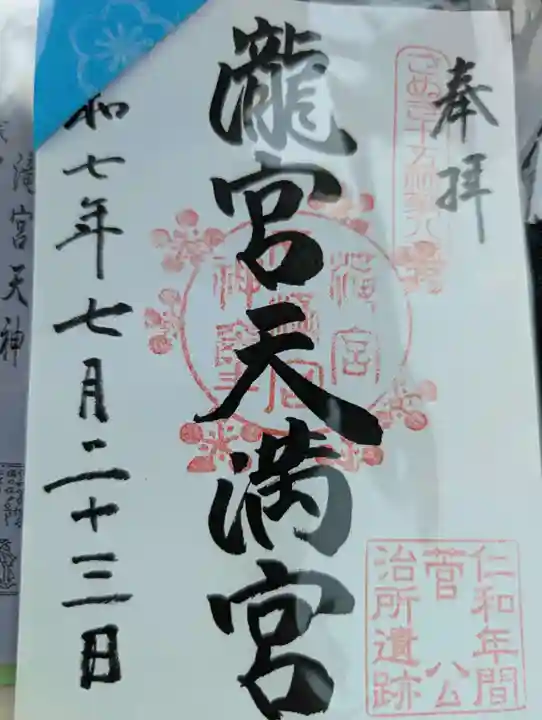 奉拝
瀧宮天満宮
和七年七月二十三日
仁和年間
菅公
治所遺跡
滝宮
天満宮
神璽
滝宮天神